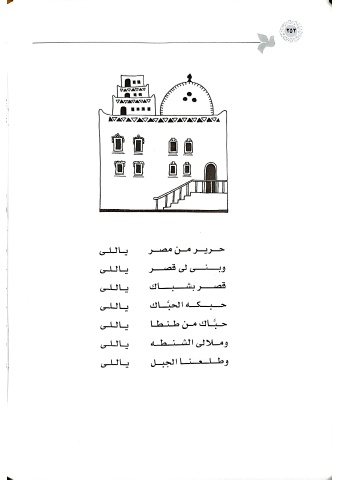 ٢٥٢
حرير من مصر ياللى
وبنى لى قصر ياللى
قصر بشباك ياللى
حبكه الحبَّاك ياللى
حبَّاك من طنطا ياللى
وملالى الشنطه ياللى
وطلعنا الجبل ياللى